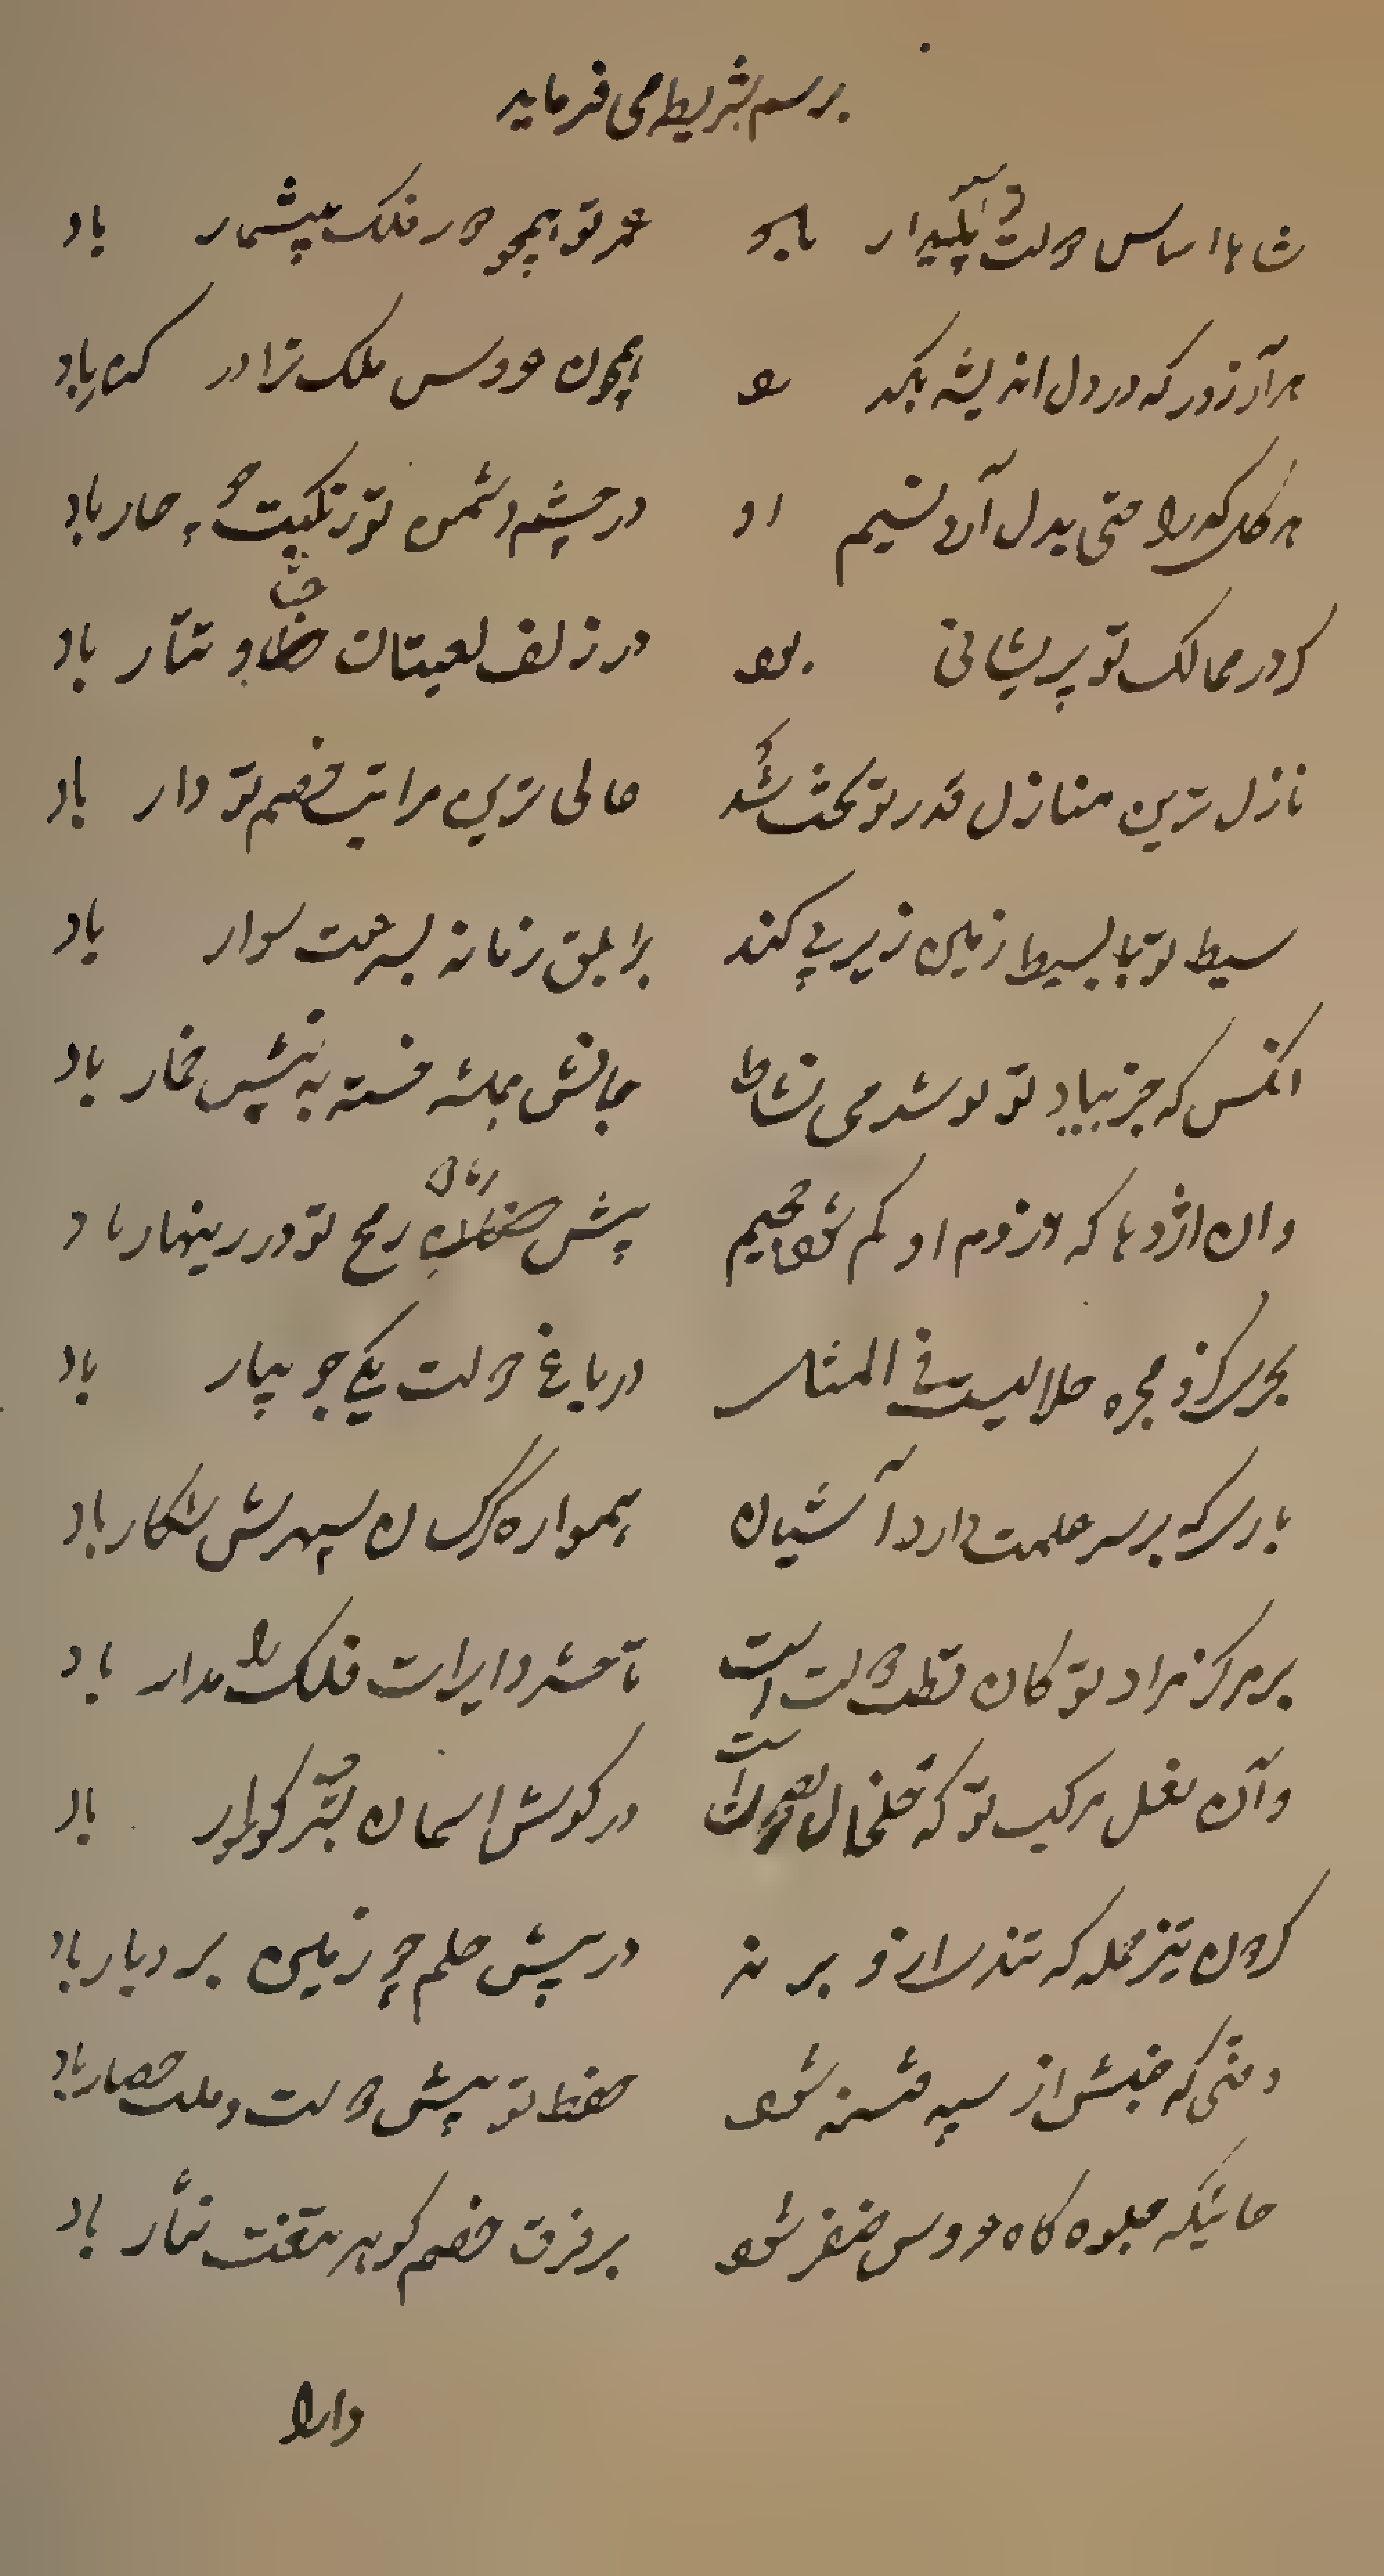 برسم شریطه می فرماید
شاها اساس دولت پایدار باد عمر تو همچو دور فلک بیشمار باد
هر آرزو که در دل اندیشه بگذرد همچون عروس ملک ترا در کنار باد
هر گل که راحتی بدل آرد نسیم او در چشم دشمن تو ز نکبت چو خار باد
گر در ممالک تو پریشانی بود در زلف لعبتان ختا و تتار باد
نازل ترین منازل قدر تو تخت شد عالی ترین مراتب خصم تو دار باد
سیط تو تا بسیط زمین زیر پی کند بر ابلق زمانه بسرعت سوار باد
انکس که جز بیاد تو نوشد می نشاط جانش همیشه خسته به نیش خمار باد
وان اژدها که از دم او کم شود جحیم پیش رمح تو در زینهار باد
بحری کزو مجره خلالیست فی المثل در باغ دولت یکی جویبار باد
بازی که بر سر علمت دارد آشیان همواره کرکسان سپهرش شکار باد
بر مرکز مراد تو کان قطب دولت است تا حشر دایرات فلک را مدار باد
وآن نعل مرکب تو که خلخال نصرت است در گوش اسمان بتر گوشوار باد
گردون تیز حمله که تندی ازو برند در پیش حلم چو زمین بردبار باد
وقتی که جنبش از سپه فتنه شود حفظ تو پیش دولت و ملت حصار باد
جائیکه جلوه گاه عروس ظفر شود بر فرق خصم گوهر تیغت نثار باد
دارا